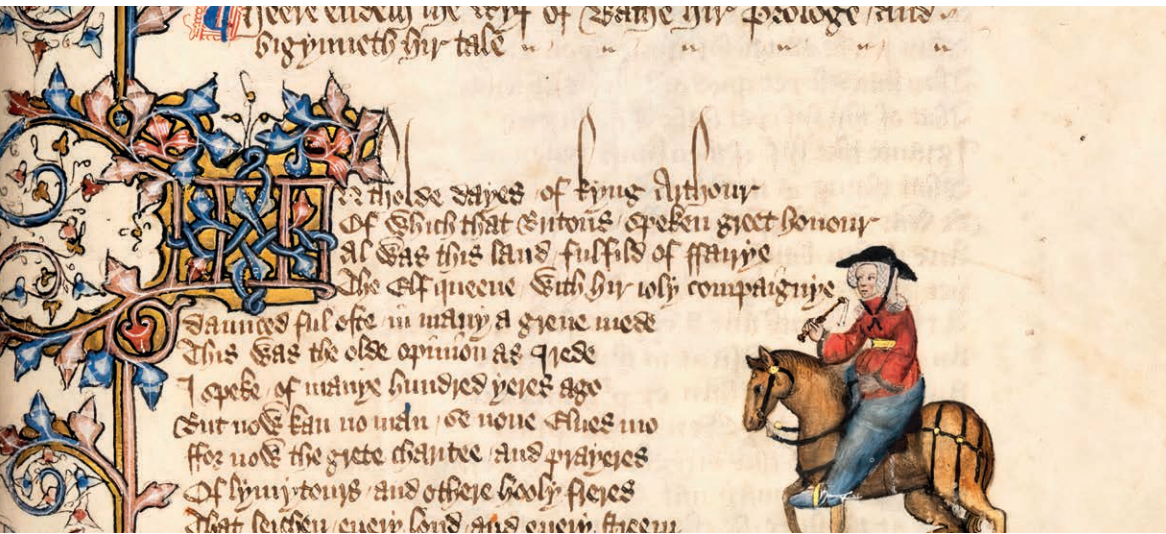 Heere endeth the Wyf of Bathe hir Prologe / and
bigynneth hir tale
IN tholde dayes / of kyng Arthour
Of which that Britons / speken greet honour
Al was this land / fulfild of ffairye
The Elf queene / with hir ioly compaignye
Daunced ful ofte in many a grene mede
This was the olde opinion as I rede
I speke / of manye hundred yeres ago
But now kan no man / se none Elues mo
ffor now the grete charitee / and prayeres
Of lymytours / and othere hooly freres
That serchen / euery lond / and euery streem